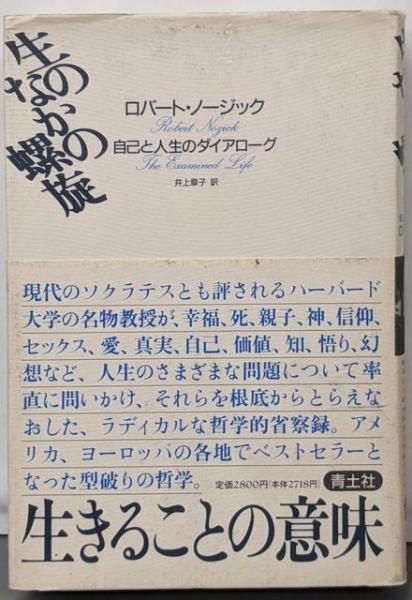 生のなかの螺旋
ロバート・ノージック
Robert Nozick
自己と人生のダイアローグ
The Examined Life
井上章子 訳
現代のソクラテスとも評されるハーバード
大学の名物教授が、幸福、死、親子、神、信仰、
セックス、愛、真実、自己、価値、知、悟り、幻
想など、人生のさまざまな問題について率
直に問いかけ、それらを根底からとらえな
おした、ラディカルな哲学的省察録。アメ
リカ、ヨーロッパの各地でベストセラーと
なった型破りの哲学。 定価2800円(本体2718円) 青土社
生きることの意味